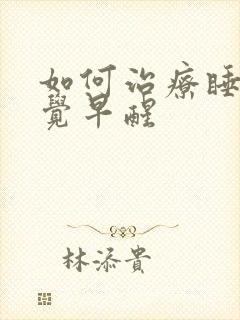 如何治療睡
覺早醒
林添貴